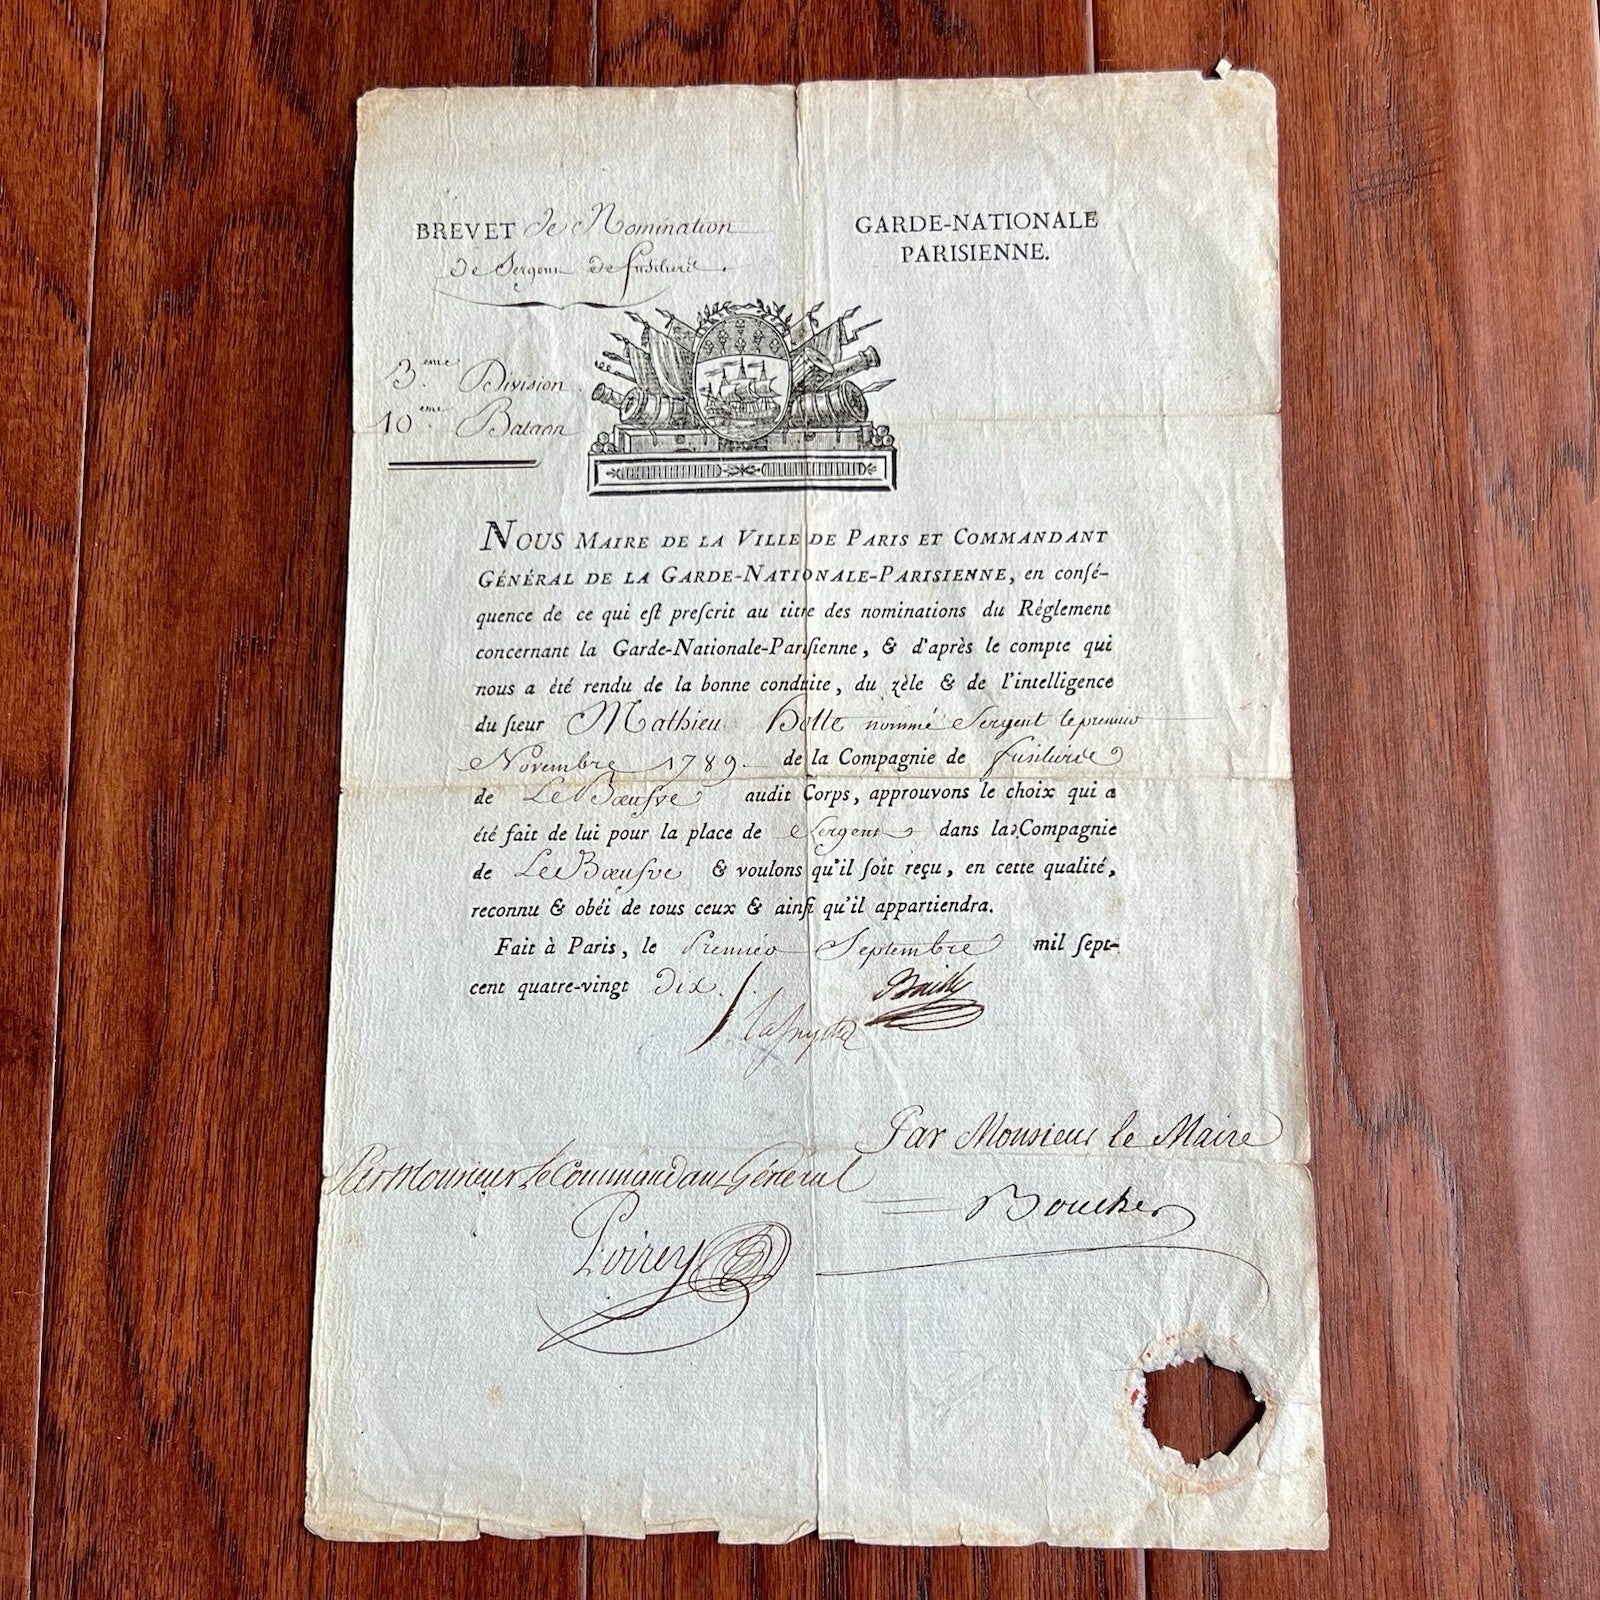 BREVET de Nomination
de Sergent de fusiliers.
GARDE-NATIONALE
PARISIENNE.
3.eme Division
10.eme Bataon
NOUS MAIRE DE LA VILLE DE PARIS ET COMMANDANT
GÉNÉRAL DE LA GARDE-NATIONALE-PARISIENNE, en conſé-
quence de ce qui eſt preſcrit au titre des nominations du Réglement
concernant la Garde-Nationale-Pariſienne, & d'après le compte qui
nous a été rendu de la bonne conduite, du zèle & de l'intelligence
du ſieur Mathieu Hotte nommé Sergent le premier
Novembre 1789. de la Compagnie de fusiliers
de Le Bœufve audit Corps, approuvons le choix qui a
été fait de lui pour la place de Sergent dans la Compagnie
de Le Bœufve & voulons qu'il ſoit reçu, en cette qualité,
reconnu & obéi de tous ceux & ainſi qu'il appartiendra.
Fait à Paris, le Premier Septembre mil ſept-
cent quatre-vingt Dix.
Bailly
Lafayette
Par Monsieur le Maire
Par Monsieur le Commandant Général
Boucher
Poirey